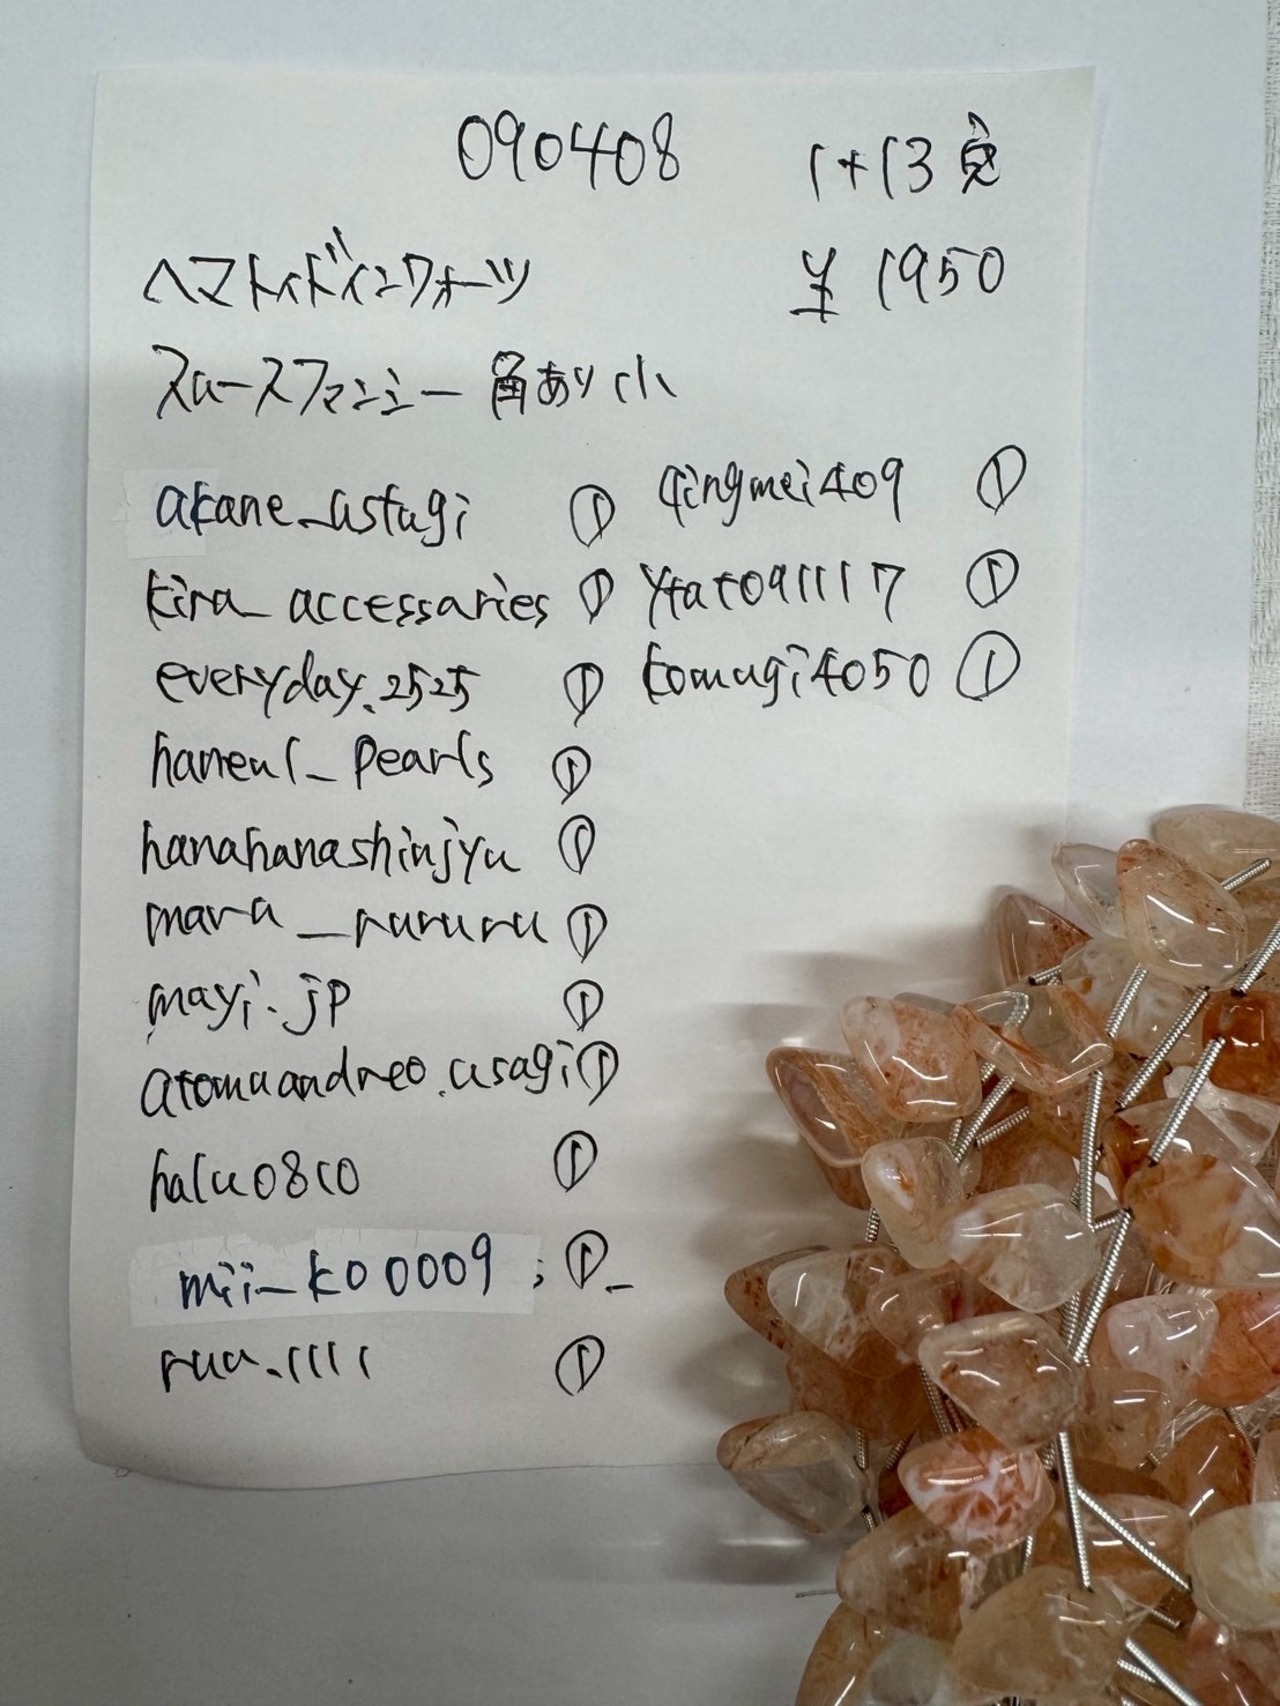 090408
1+13
¥1950
ヘマトイドインクォーツ
スムースファンシー 角あり 小
akane_ustugi ①
kira_accessaries ①
everyday.2525 ①
haneul_pearls ①
hanahanashinjyu ①
mara_rururu ①
mayi.jp ①
atomuandreo.usagi ①
halu0810 ①
mii_k00009 ①
ruu.1111 ①
qingmei409 ①
ytat091117 ①
komugi4050 ①